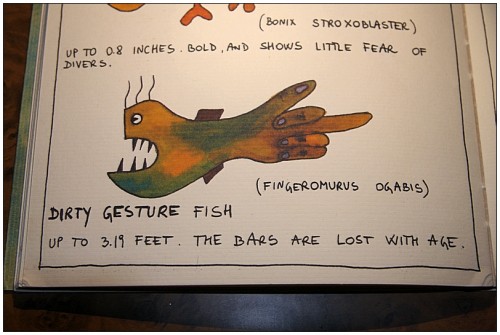 (BONIX STROXOBLASTER)
UP TO 0.8 INCHES. BOLD, AND SHOWS LITTLE FEAR OF
DIVERS.
(FINGEROMURUS OGABIS)
DIRTY GESTURE FISH
UP TO 3.19 FEET. THE BARS ARE LOST WITH AGE.